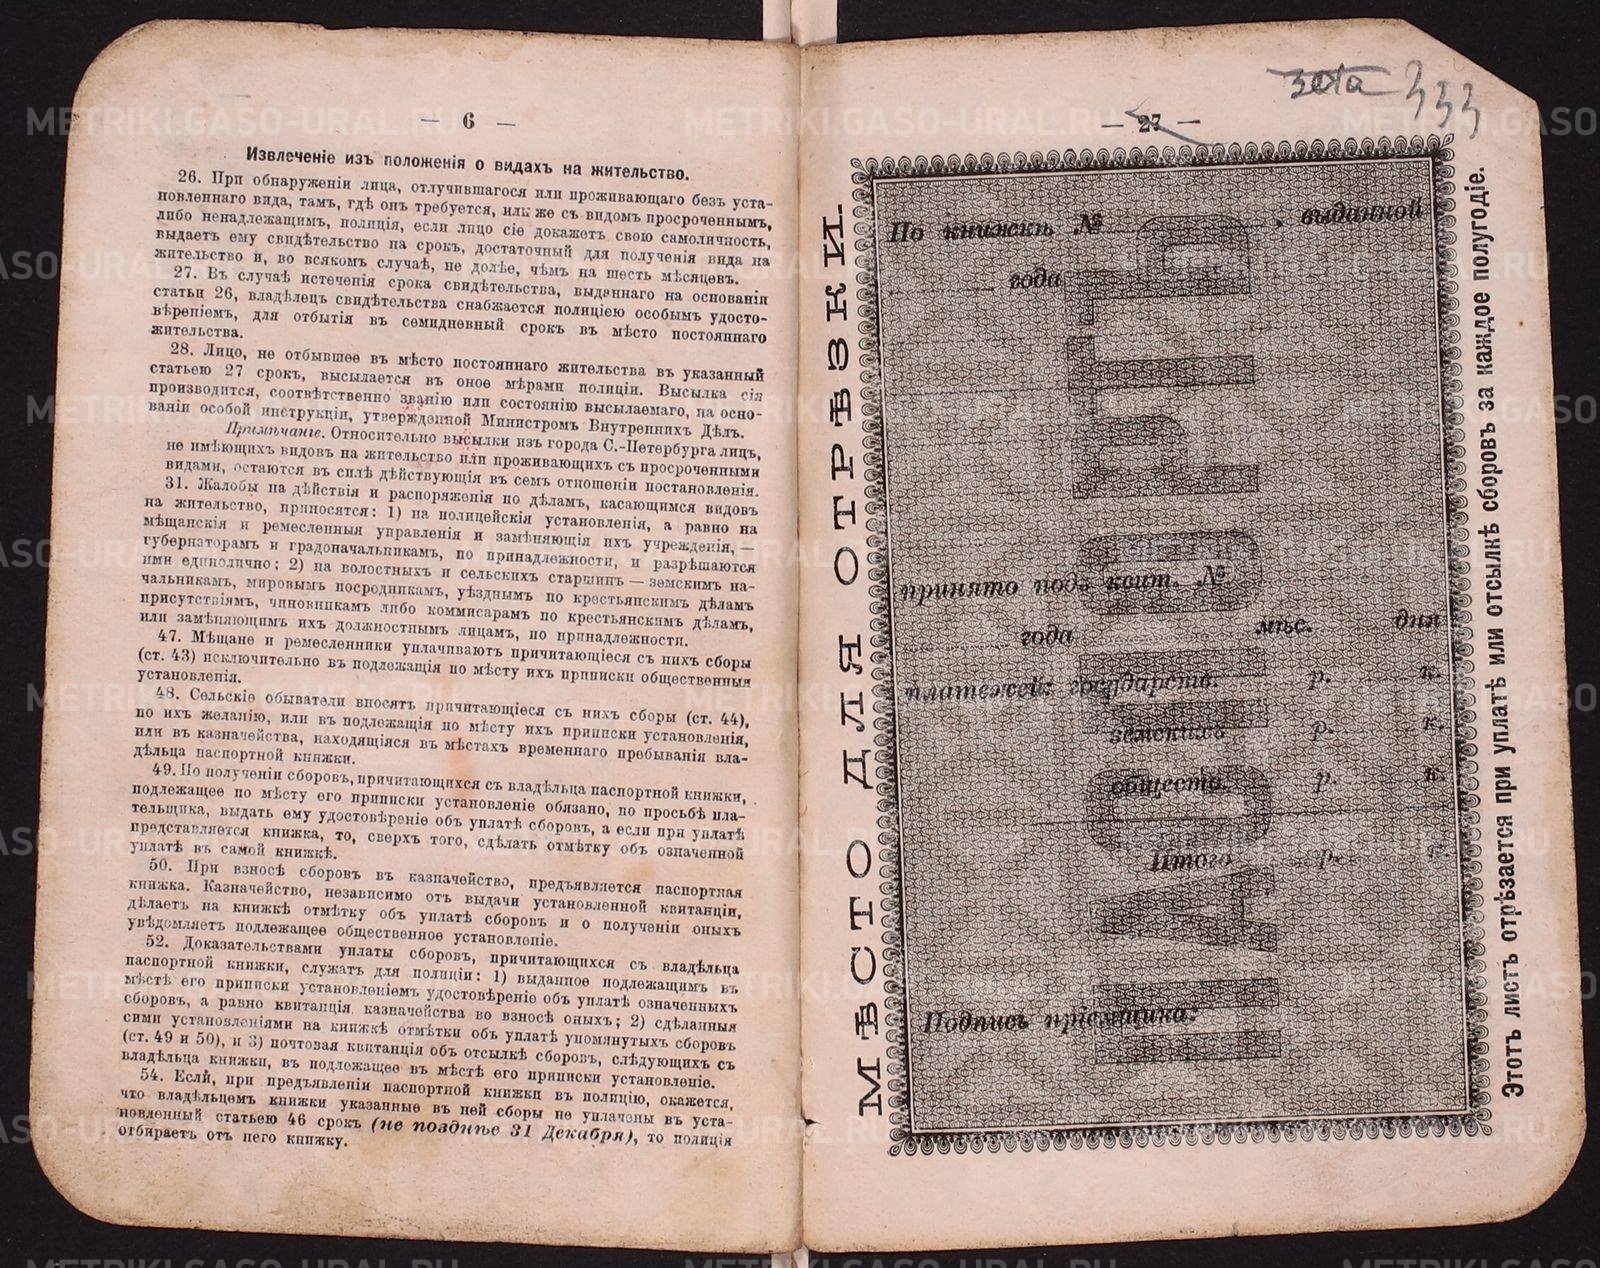 — 6 —
Извлеченіе изъ положенія о видахъ на жительство.
26. При обнаруженіи лица, отлучившагося или проживающаго безъ уста-
новленнаго вида, тамъ, гдѣ онъ требуется, или же съ видомъ просроченнымъ,
либо ненадлежащимъ, полиція, если лицо сіе докажетъ свою самоличность,
выдаетъ ему свидѣтельство на срокъ, достаточный для полученія вида на
жительство и, во всякомъ случаѣ, не долѣе, чѣмъ на шесть мѣсяцевъ.
27. Въ случаѣ истеченія срока свидѣтельства, выданнаго на основаніи
статьи 26, владѣлецъ свидѣтельства снабжается полиціею особымъ удосто-
вѣреніемъ, для отбытія въ семидневный срокъ въ мѣсто постояннаго
жительства.
28. Лицо, не отбывшее въ мѣсто постояннаго жительства въ указанный
статьею 27 срокъ, высылается въ оное мѣрами полиціи. Высылка сія
производится, соотвѣтственно званію или состоянію высылаемаго, на осно-
ваніи особой инструкціи, утвержденной Министромъ Внутреннихъ Дѣлъ.
Примѣчаніе. Относительно высылки изъ города С.-Петербурга лицъ,
не имѣющихъ видовъ на жительство или проживающихъ съ просроченными
видами, остаются въ силѣ дѣйствующія въ семъ отношеніи постановленія.
31. Жалобы на дѣйствія и распоряженія по дѣламъ, касающимся видовъ
на жительство, приносятся: 1) на полицейскія установленія, а равно на
мѣщанскія и ремесленныя управленія и замѣняющія ихъ учрежденія, —
губернаторамъ и градоначальникамъ, по принадлежности, и разрѣшаются
ими единолично; 2) на волостныхъ и сельскихъ старшинъ — земскимъ на-
чальникамъ, мировымъ посредникамъ, уѣзднымъ по крестьянскимъ дѣламъ
присутствіямъ, чиновникамъ либо коммисарамъ по крестьянскимъ дѣламъ,
или замѣняющимъ ихъ должностнымъ лицамъ, по принадлежности.
47. Мѣщане и ремесленники уплачиваютъ причитающіеся съ нихъ сборы
(ст. 43) исключительно въ подлежащія по мѣсту ихъ приписки общественныя
установленія.
48. Сельскіе обыватели вносятъ причитающіеся съ нихъ сборы (ст. 44),
по ихъ желанію, или въ подлежащія по мѣсту ихъ приписки установленія,
или въ казначейства, находящіяся въ мѣстахъ временнаго пребыванія вла-
дѣльца паспортной книжки.
49. По полученіи сборовъ, причитающихся съ владѣльца паспортной книжки,
подлежащее по мѣсту его приписки установленіе обязано, по просьбѣ пла-
тельщика, выдать ему удостовѣреніе объ уплатѣ сборовъ, а если при уплатѣ
представляется книжка, то, сверхъ того, сдѣлать отмѣтку объ означенной
уплатѣ въ самой книжкѣ.
50. При взносѣ сборовъ въ казначейство, предъявляется паспортная
книжка. Казначейство, независимо отъ выдачи установленной квитанціи,
дѣлаетъ на книжкѣ отмѣтку объ уплатѣ сборовъ и о полученіи оныхъ
увѣдомляетъ подлежащее общественное установленіе.
52. Доказательствами уплаты сборовъ, причитающихся съ владѣльца
паспортной книжки, служатъ для полиціи: 1) выданное подлежащимъ въ
мѣстѣ его приписки установленіемъ удостовѣреніе объ уплатѣ означенныхъ
сборовъ, а равно квитанція казначейства во взносѣ оныхъ; 2) сдѣланныя
сими установленіями на книжкѣ отмѣтки объ уплатѣ упомянутыхъ сборовъ
(ст. 49 и 50), и 3) почтовая квитанція объ отсылкѣ сборовъ, слѣдующихъ съ
владѣльца книжки, въ подлежащее въ мѣстѣ его приписки установленіе.
54. Если, при предъявленіи паспортной книжки въ полицію, окажется,
что владѣльцемъ книжки указанные въ ней сборы не уплачены въ уста-
новленный статьею 46 срокъ (не позднѣе 31 Декабря), то полиція
отбираетъ отъ него книжку.
333
— 27 —
МѢСТО ДЛЯ ОТРѢЗКИ.
ПАСПОРТЪ
По книжкѣ №, выданной
года
принято подъ квит. №
года мѣс. дня
платежей: государств. р. к.
земскихъ р. к.
обществ. р. к.
Итого р. к.
Подпись пріемщика:
Этотъ листъ отрѣзается при уплатѣ или отсылкѣ сборовъ за каждое полугодіе.
METRIKI.GASO-URAL.RU